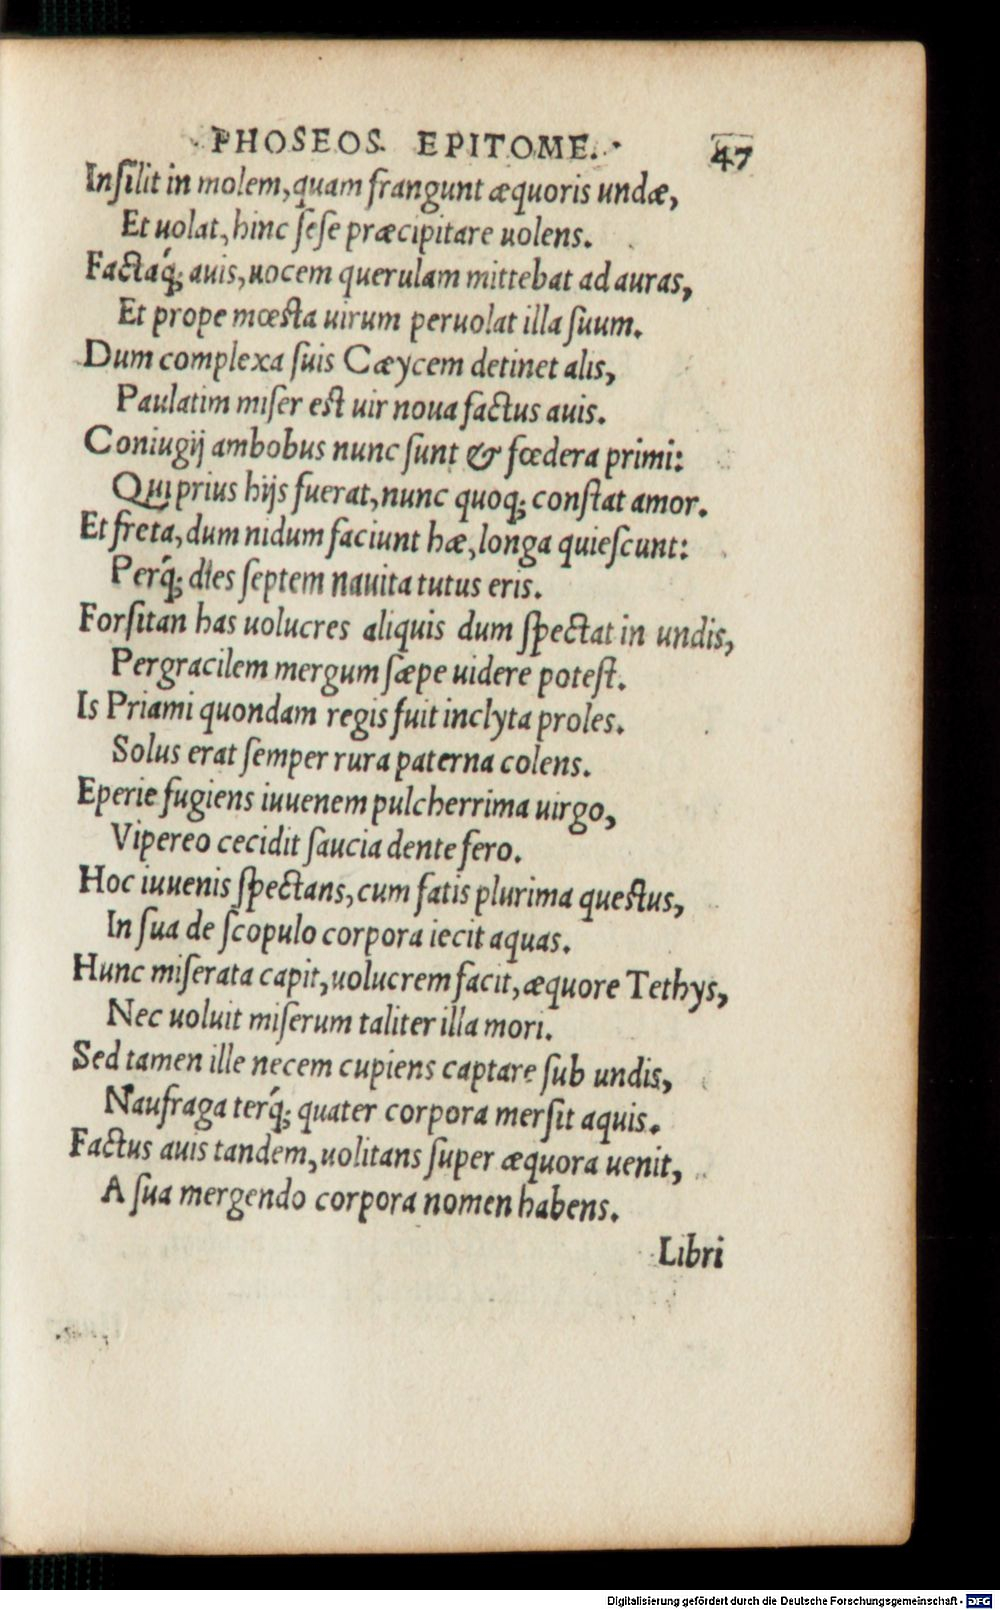 PHOSEOS. EPITOME. 47
Inſilit in molem, quam frangunt æquoris undæ,
Et uolat, hinc ſeſe præcipitare uolens.
Factaq́; auis, uocem querulam mittebat ad auras,
Et prope mœsta uirum peruolat illa ſuum.
Dum complexa ſuis Cæycem detinet alis,
Paulatim miſer est uir noua factus auis.
Coniugij ambobus nunc ſunt & fœdera primi:
Qui prius hijs fuerat, nunc quoq; conſtat amor.
Et freta, dum nidum faciunt hæ, longa quieſcunt:
Perq́; dies ſeptem nauita tutus eris.
Forſitan has uolucres aliquis dum ſpectat in undis,
Pergracilem mergum ſæpe uidere poteſt.
Is Priami quondam regis fuit inclyta proles.
Solus erat ſemper rura paterna colens.
Eperie fugiens iuuenem pulcherrima uirgo,
Vipereo cecidit ſaucia dente fero.
Hoc iuuenis ſpectans, cum fatis plurima questus,
In ſua de ſcopulo corpora iecit aquas.
Hunc miſerata capit, uolucrem facit, æquore Tethys,
Nec uoluit miſerum taliter illa mori.
Sed tamen ille necem cupiens captare ſub undis,
Naufraga terq́; quater corpora merſit aquis.
Factus auis tandem, uolitans ſuper æquora uenit,
A ſua mergendo corpora nomen habens.
Libri
Digitalisierung gefördert durch die Deutsche Forschungsgemeinschaft - DFG